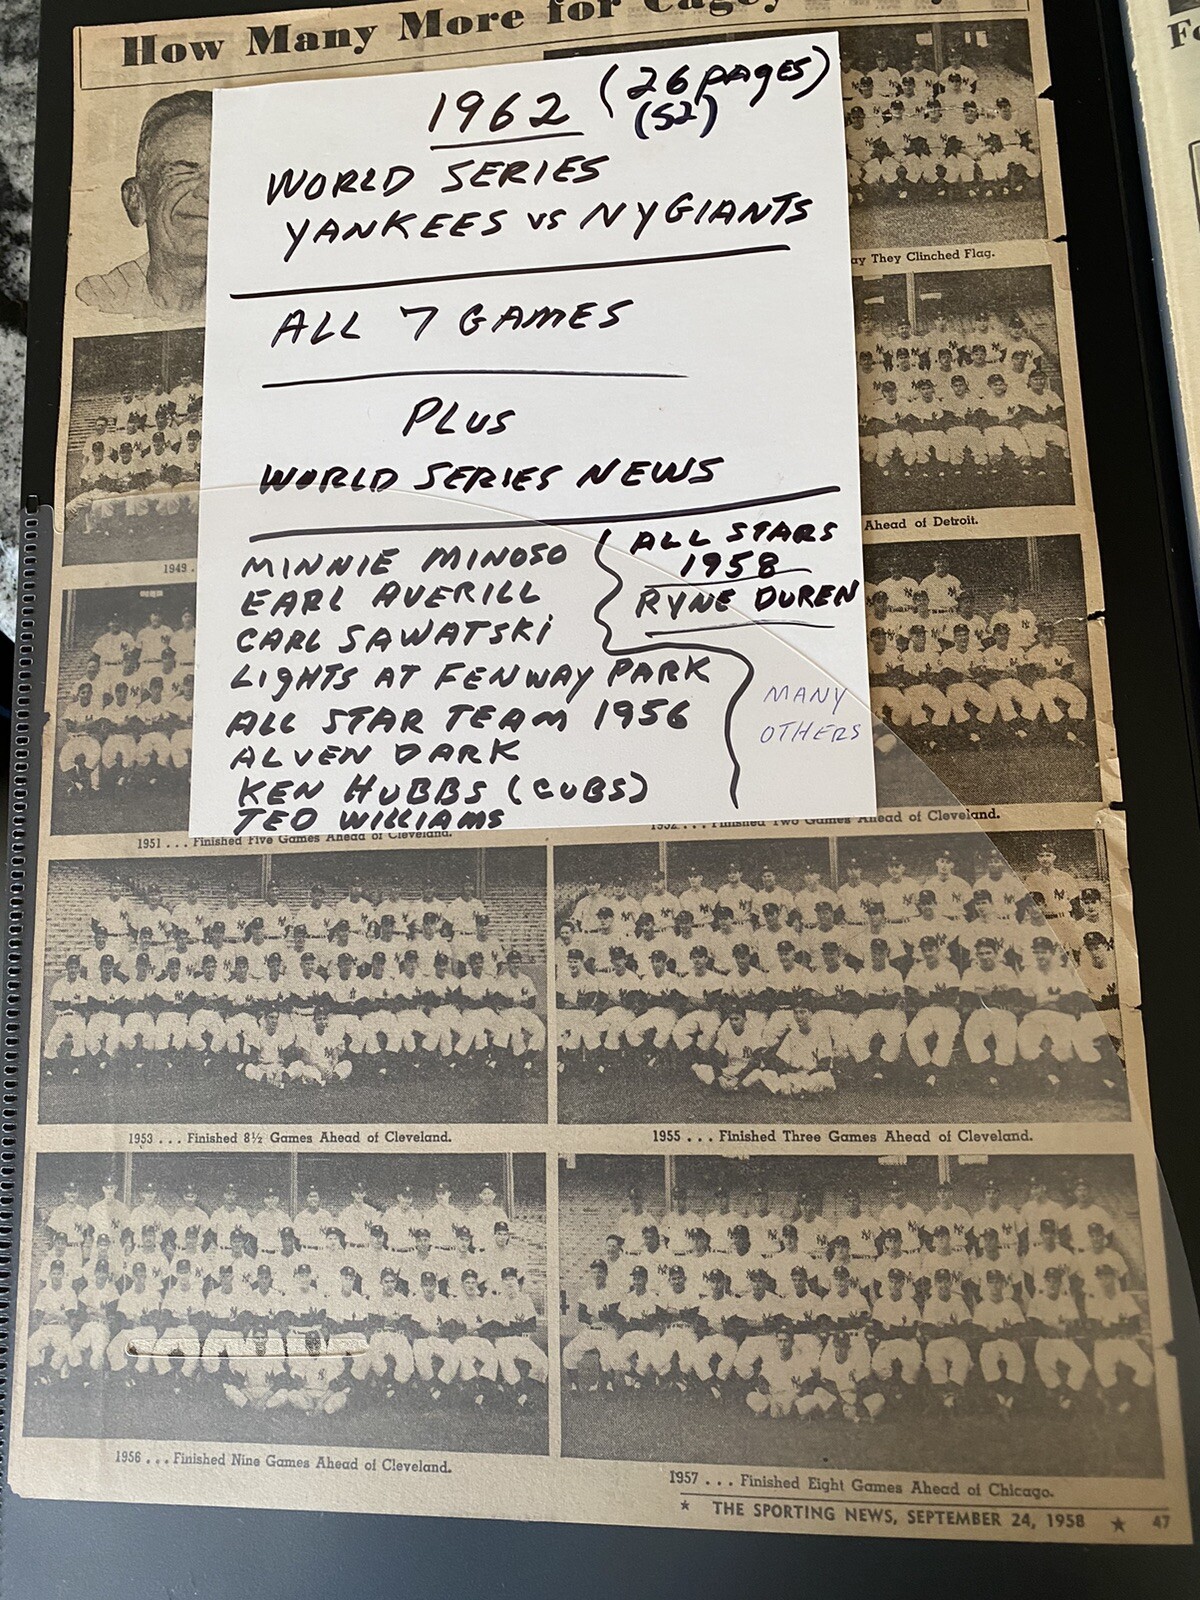 How Many More for
1962 (26 PAGES)
(52)
WORLD SERIES
YANKEES VS NY GIANTS
ALL 7 GAMES
PLUS
WORLD SERIES NEWS
MINNIE MINOSO
EARL AVERILL
CARL SAWATSKI
LIGHTS AT FENWAY PARK
ALL STAR TEAM 1956
ALVEN DARK
KEN HUBBS (CUBS)
TED WILLIAMS
ALL STARS
1958
RYNE DUREN
MANY
OTHERS
ay They Clinched Flag.
1949 .
Ahead of Detroit.
1951 . . . Finished Five Games Ahead of Cleveland.
1952 . . . Finished Two Games Ahead of Cleveland.
1953 . . . Finished 8½ Games Ahead of Cleveland.
1955 . . . Finished Three Games Ahead of Cleveland.
1956 . . . Finished Nine Games Ahead of Cleveland.
1957 . . . Finished Eight Games Ahead of Chicago.
★ THE SPORTING NEWS, SEPTEMBER 24, 1958 ★ 47